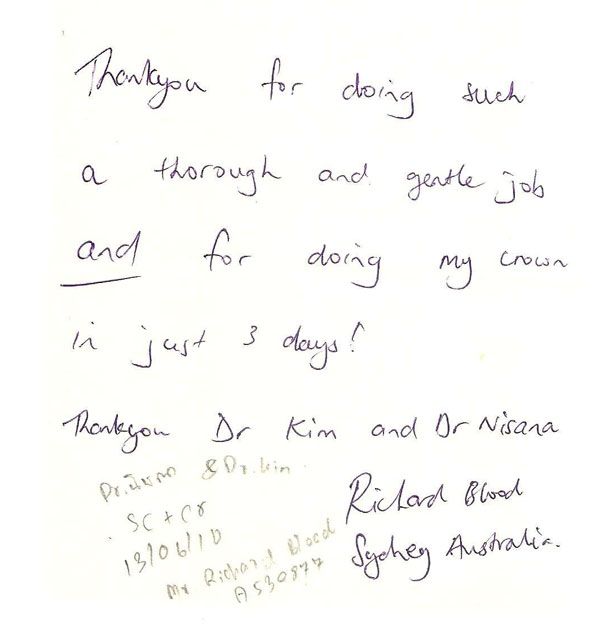 Thankyou for doing such
a thorough and gentle job
and for doing my crown
in just 3 days!
Thankyou Dr Kim and Dr Nisana
Dr. & Dr. kim
SC + Cr
13/06/10
Mr Richard Blood
A530877
Richard Blood
Sydney Australia.